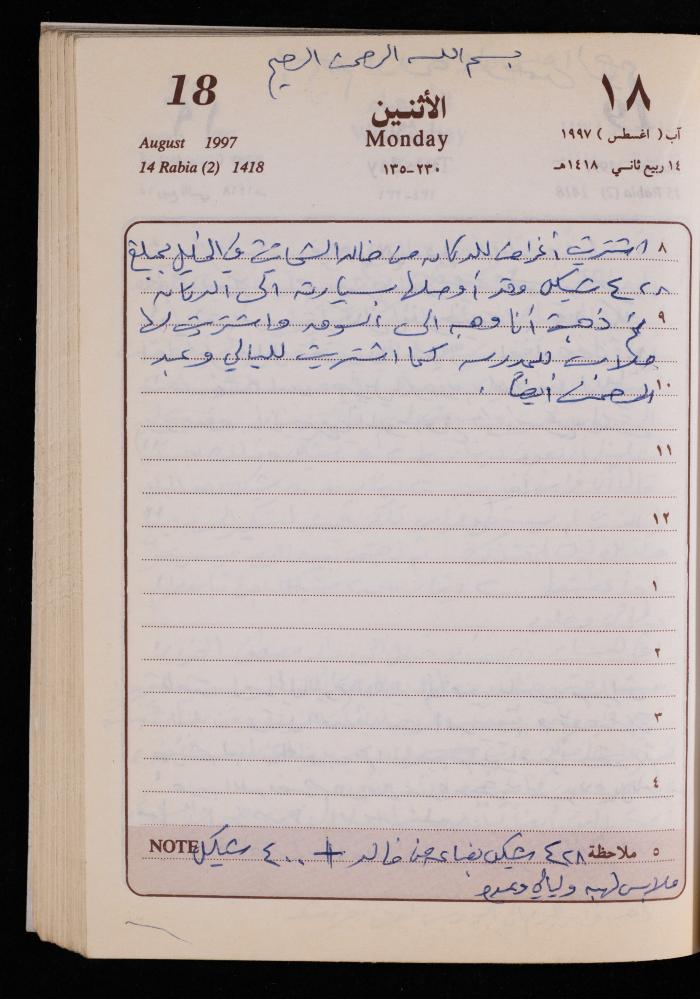 بسم الله الرحمن الرحيم
18
الأثنين
١٨
August 1997
Monday
آب ( اغسطس ) ١٩٩٧
14 Rabia (2) 1418
١٣٥-٢٣٠
١٤ ربيع ثاني ١٤١٨هـ
٨ اشتريت أغراض للدكان من خالد في الخليل بمبلغ
٤٢٨ شيكل وقد أوصلها بسيارته الى الدكان
٩ ثم ذهبت أنا وهبه الى السوق واشتريت لها
ملابس للمدرسه كما اشتريت لليالي وعبد
١٠ الرحمن أيضاً .
١١
١٢
١
٢
٣
٤
NOTE ٥ ملاحظة ٤٢٨ شيكل بضاعه من خالد + ٤٠٠ شيكل
ملابس لهبه وليالي